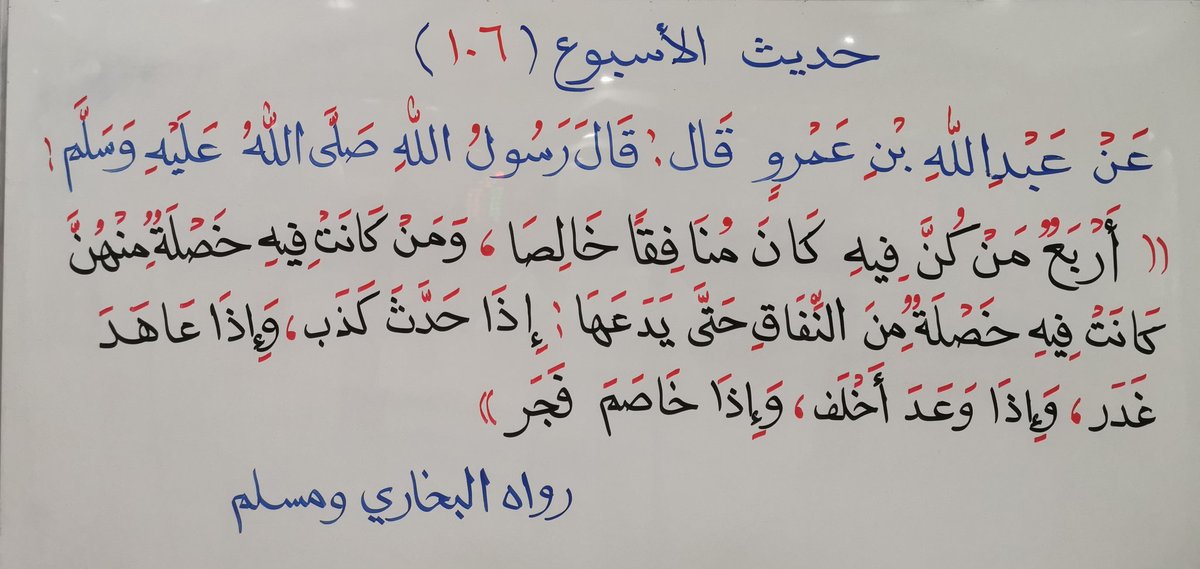 حديث الأسبوع (١٠٦)
عَنْ عَبْدِاللَّهِ بْنِ عَمْرٍو قَال: قَالَ رَسُولُ اللَّهِ صَلَّى اللَّهُ عَلَيْهِ وَسَلَّم:
(( أَرْبَعٌ مَنْ كُنَّ فِيهِ كَانَ مُنَافِقًا خَالِصَا، وَمَنْ كَانَتْ فِيهِ خَصْلَةٌ مِنْهُنَّ
كَانَتْ فِيهِ خَصْلَةٌ مِنَ النِّفَاقِ حَتَّى يَدَعَهَا: إِذَا حَدَّثَ كَذَب، وَإِذَا عَاهَدَ
غَدَر، وَإِذَا وَعَدَ أَخْلَف، وَإِذَا خَاصَمَ فَجَر ))
رواه البخاري ومسلم